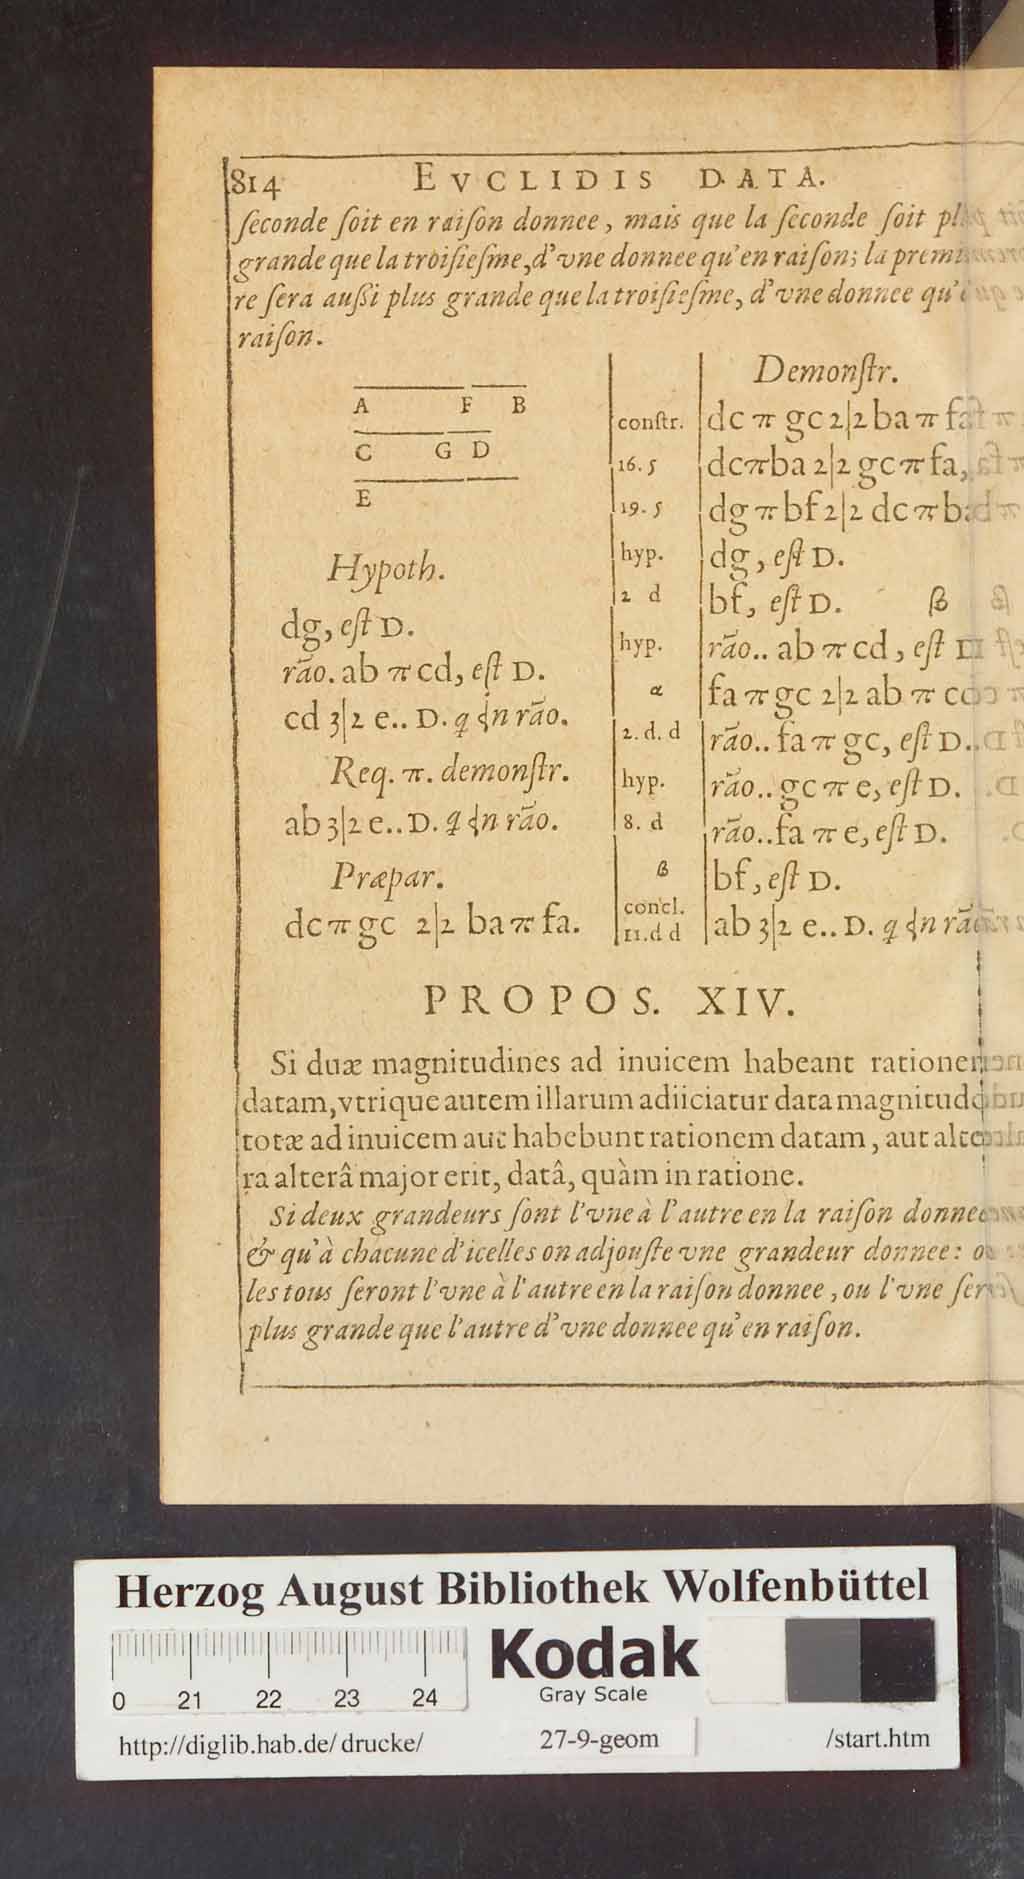 814 EVCLIDIS DATA.
ſeconde ſoit en raiſon donnee, mais que la ſeconde ſoit
grande que la troiſieſme, d'vne donnee qu'en raiſon; la premi
re ſera auſſi plus grande que la troiſieſme, d'vne donnee
raiſon.
A F B
C G D
E
Hypoth.
dg, eſt D.
rāo. ab π cd, eſt D.
cd 3|2 e.. D. q ⹂n rāo.
Req. π. demonſtr.
ab 3|2 e.. D. q ⹂n rāo.
Præpar.
dc π gc 2|2 ba π fa.
Demonſtr.
conſtr. dc π gc 2|2 ba π fa
16. 5 dc π ba 2|2 gc π fa,
19. 5 dg π bf 2|2 dc π ba
hyp. dg, eſt D.
2 d bf, eſt D. ß
hyp. rāo.. ab π cd, eſt D
α fa π gc 2|2 ab π cd
2. d. d rāo.. fa π gc, eſt D.
hyp. rāo.. gc π e, eſt D.
8. d rāo.. fa π e, eſt D.
ß bf, eſt D.
concl.
11. d d ab 3|2 e.. D. q ⹂n rāo
PROPOS. XIV.
Si duæ magnitudines ad inuicem habeant rationem
datam, vtrique autem illarum adiiciatur data magnitudo
totæ ad inuicem aut habebunt rationem datam, aut alte
ra alterâ major erit, datâ, quàm in ratione.
Si deux grandeurs ſont l'vne à l'autre en la raiſon donnee
& qu'à chacune d'icelles on adjouſte vne grandeur donnee: ou
les tous ſeront l'vne à l'autre en la raiſon donnee, ou l'vne ſera
plus grande que l'autre d'vne donnee qu'en raiſon.
Herzog August Bibliothek Wolfenbüttel
0 21 22 23 24
Kodak
Gray Scale
http://diglib.hab.de/drucke/ 27-9-geom /start.htm